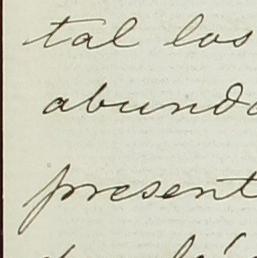 tal los
abunda
present